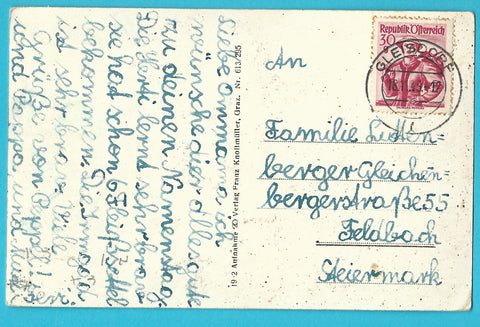 Liebe Ommama, ich
wünsche dier alles gute
zu deinen Namenstag.
Die Herti lernt sehr brav
sie hat schon Fleißzettel
bekommen. Die
ist sehr brav. Viele
Grüße von
und Pappa und
19-2 Aufnahme Verlag Franz Knollmüller, Graz. Nr. 613/295
Republik Österreich
30
GLEISDORF
An
Familie Lutten-
berger Gleichen-
bergerstraße 55
Feldbach
Steiermark